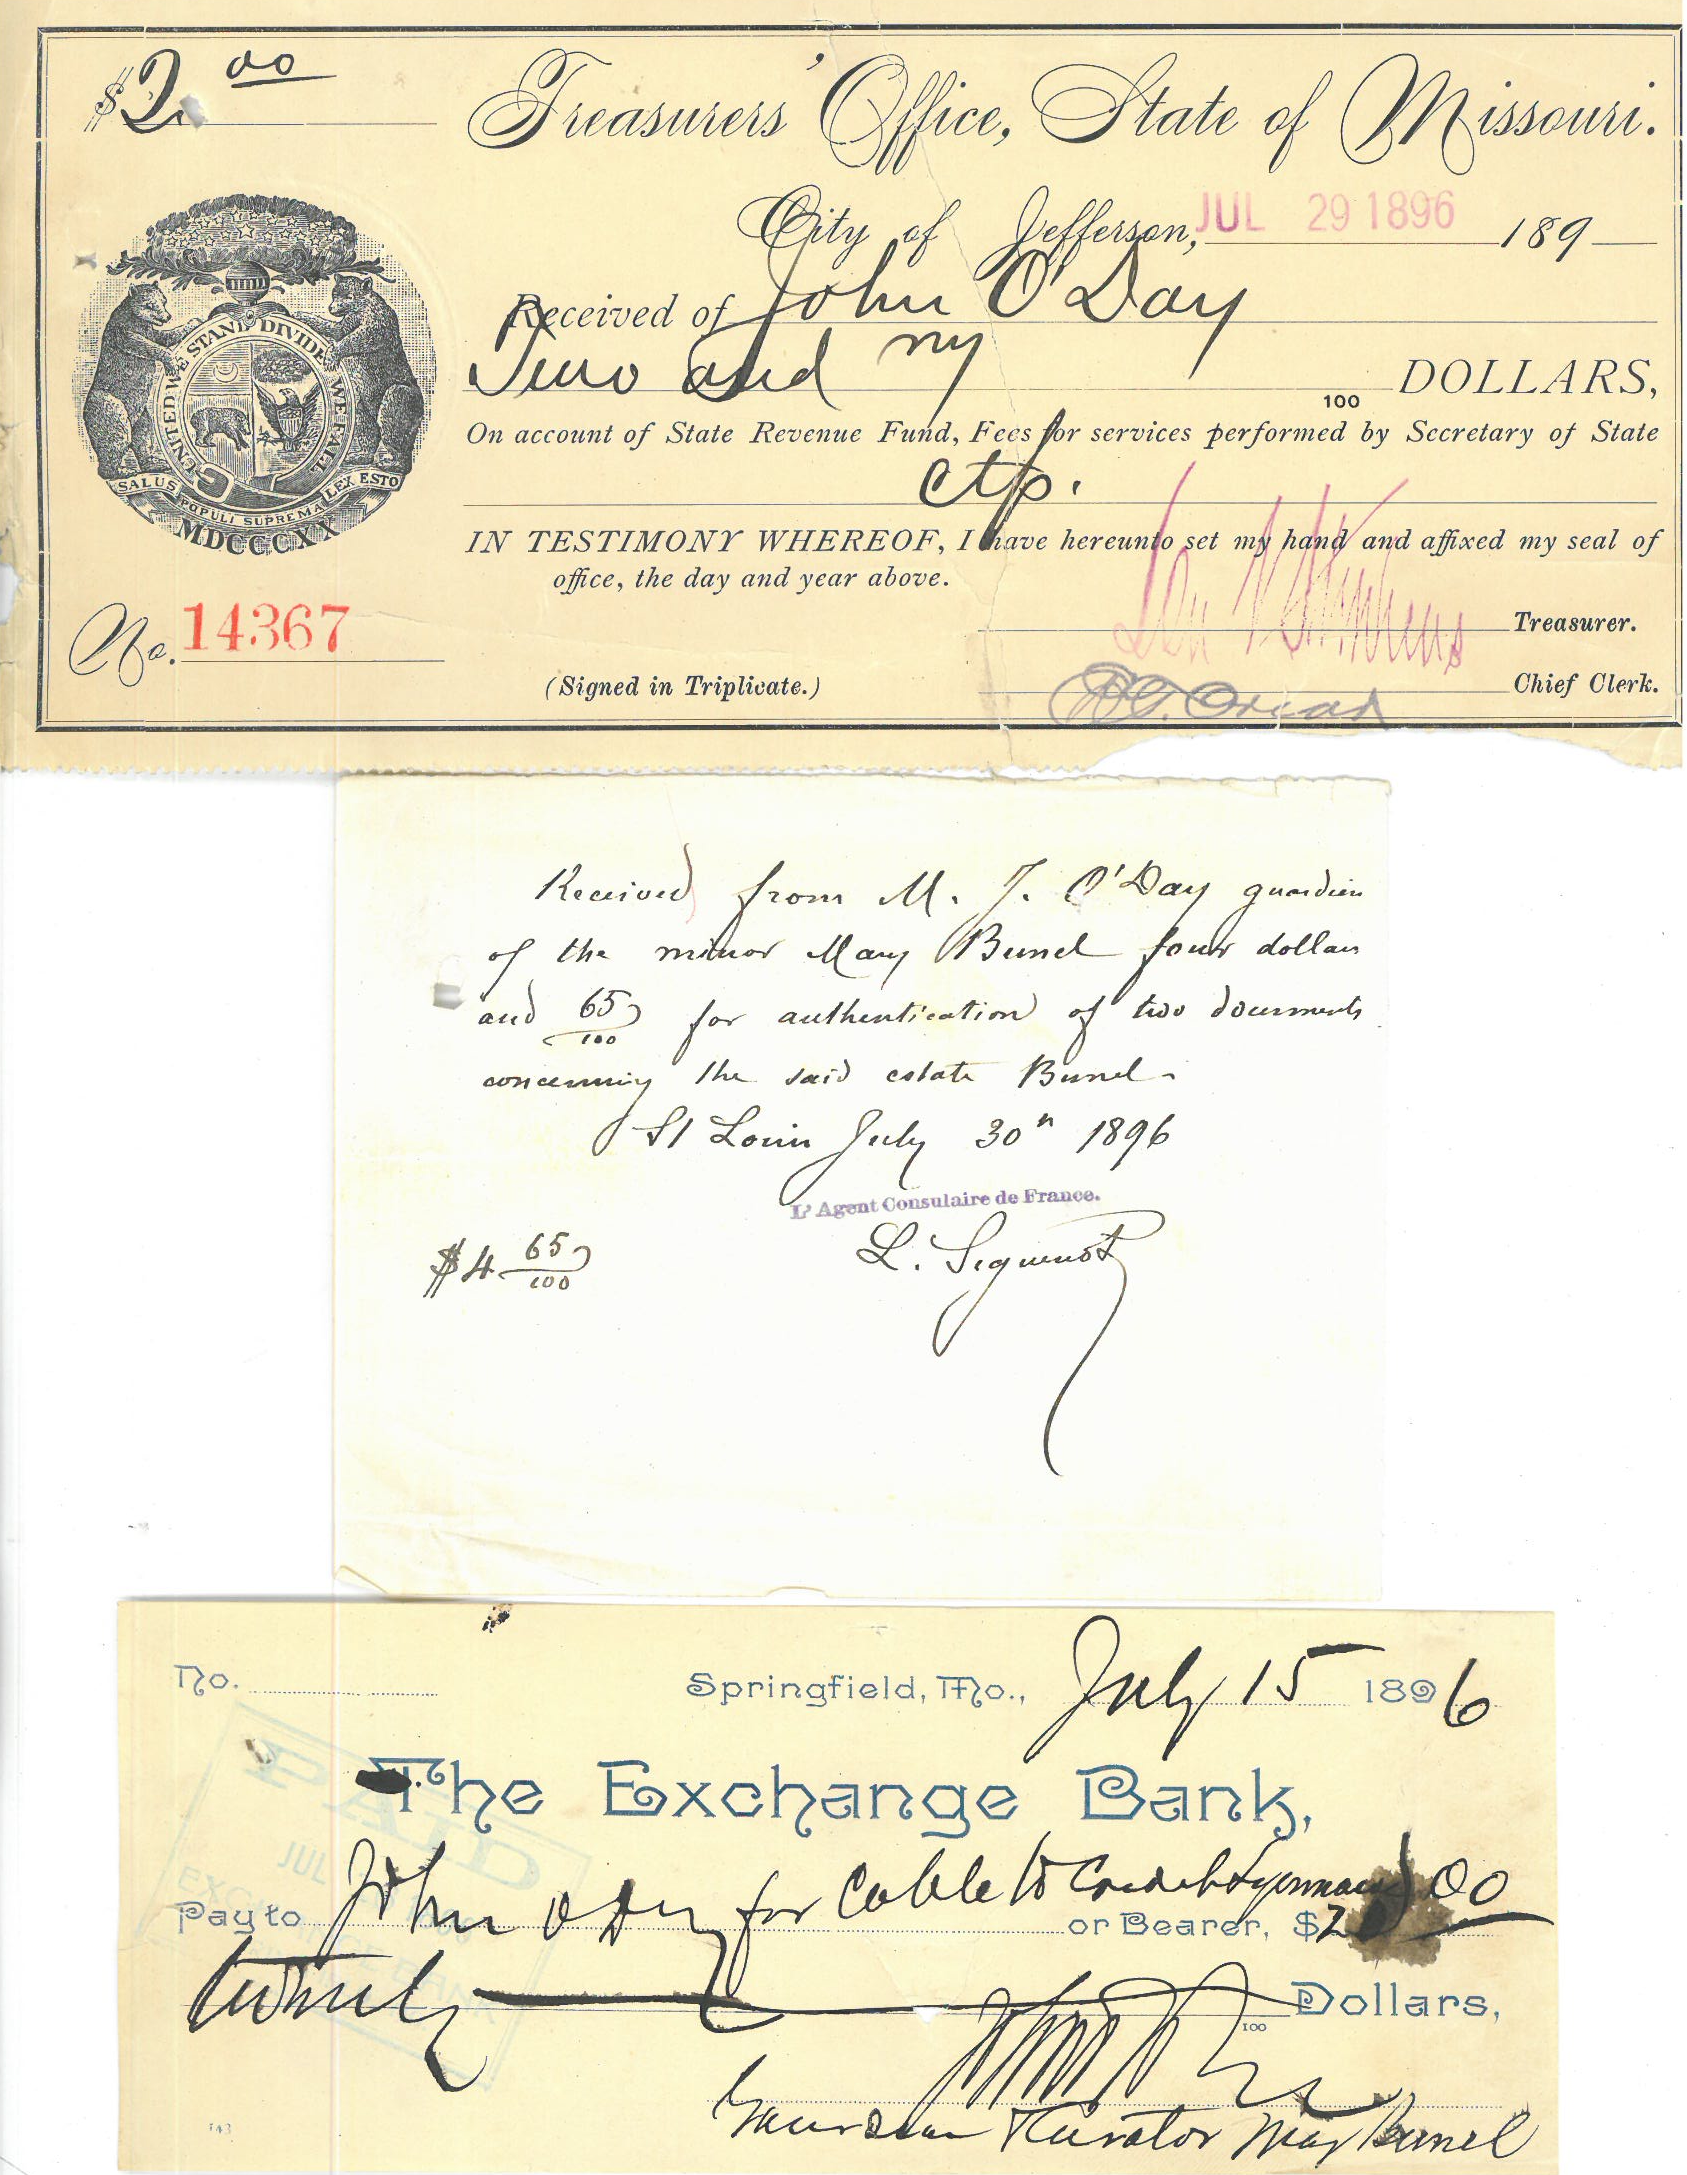 $2.00
Treasurers' Office, State of Missouri.
City of Jefferson, JUL 29 1896 189
Received of John O'Day
Two and no 100 DOLLARS,
On account of State Revenue Fund, Fees for services performed by Secretary of State
ctfs.
IN TESTIMONY WHEREOF, I have hereunto set my hand and affixed my seal of
office, the day and year above.
UNITED WE STAND DIVIDED WE FALL
SALUS POPULI SUPREMA LEX ESTO
MDCCCXX
No. 14367
Lon V Stephens Treasurer.
(Signed in Triplicate.)
Chief Clerk.
Received from M. J. O'Day guardian
of the minor Mary Bunel four dollars
and 65/100 for authentication of two documents
concerning the said estate Bunel
St Louis July 30th 1896
L'Agent Consulaire de France.
$4 65/100
L. Seguenot
No.
Springfield, Mo., July 15 1896
The Exchange Bank,
PAID
JUL
EXCHANGE BANK
Pay to John O Day for Cable to Credit Lyonnais or Bearer, $20 00
twenty 100 Dollars,
Guardian & Curator May Bunel